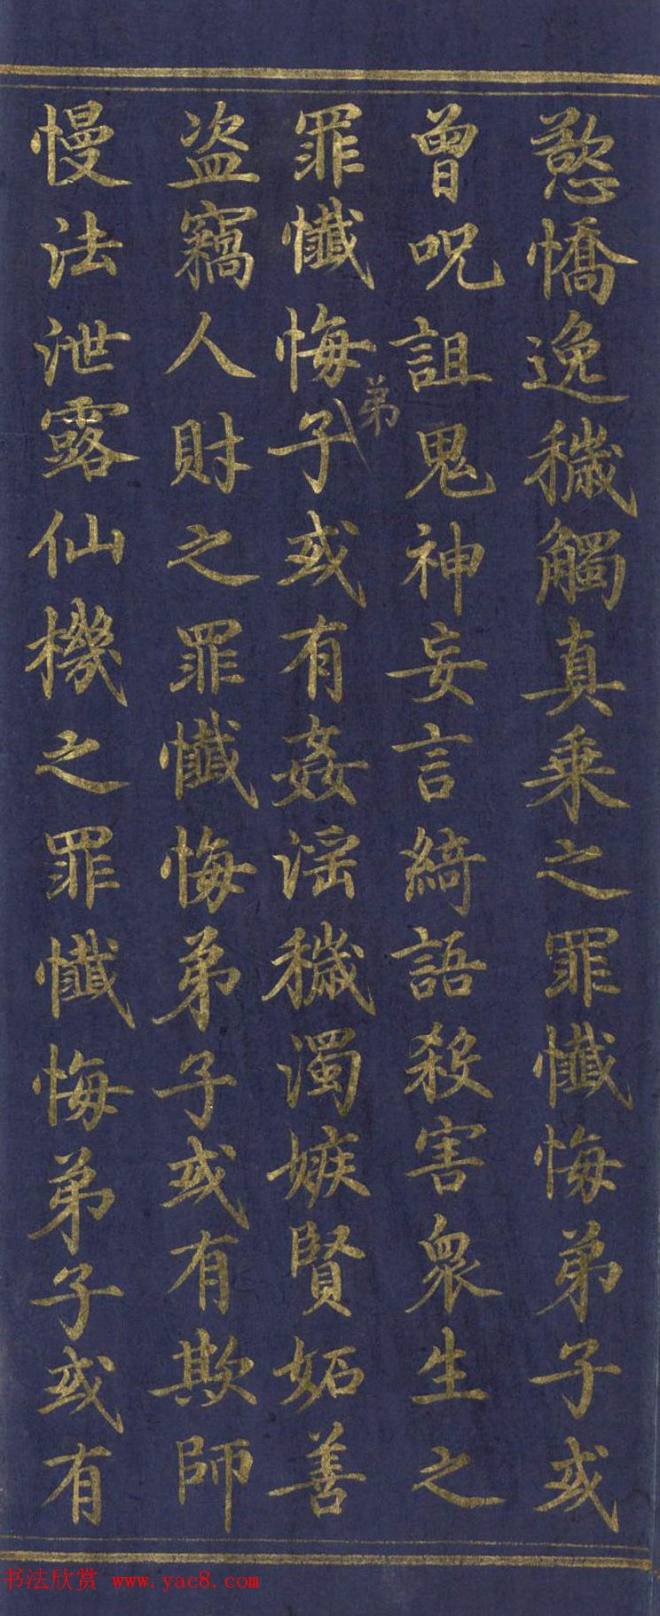 愆憍逸穢觸真乗之罪懺悔弟子或
曾呪詛鬼神妄言綺語殺害衆生之
罪懺悔弟子或有姦淫穢濁嫉賢妬善
盗竊人財之罪懺悔弟子或有欺師
慢法泄露仙機之罪懺悔弟子或有
书法欣赏 www.yac8.com